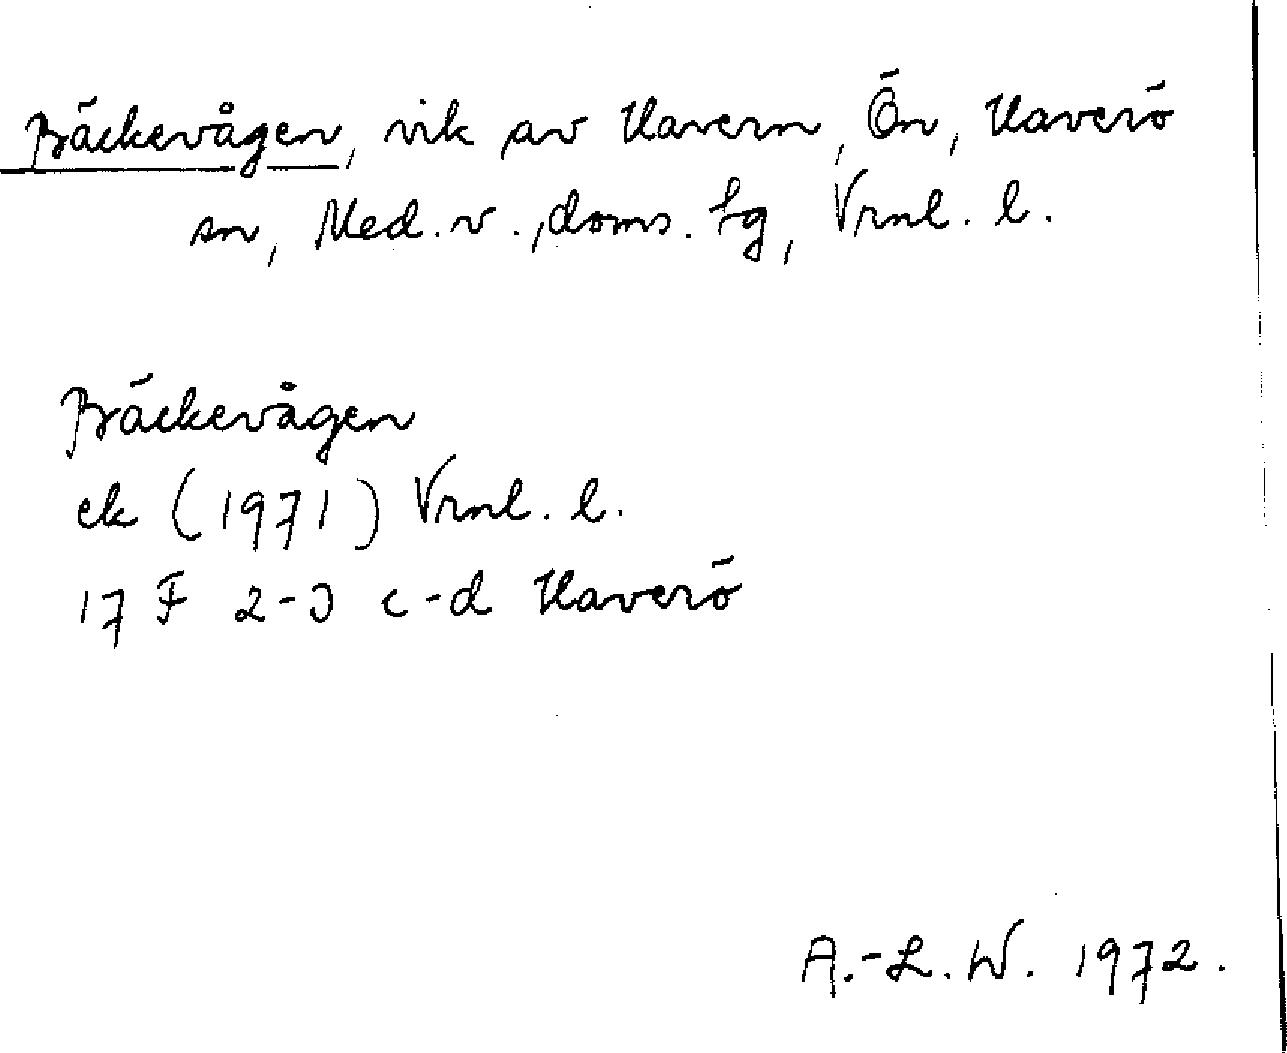 Bäckevågen, vik av Havern, Ön, Haverö
sn, Med. v., doms. tg, Vrnl. l.
Bäckevågen
ek (1971) Vrnl. l.
17 F 2-3 c-d Haverö
A.-L. W. 1972.